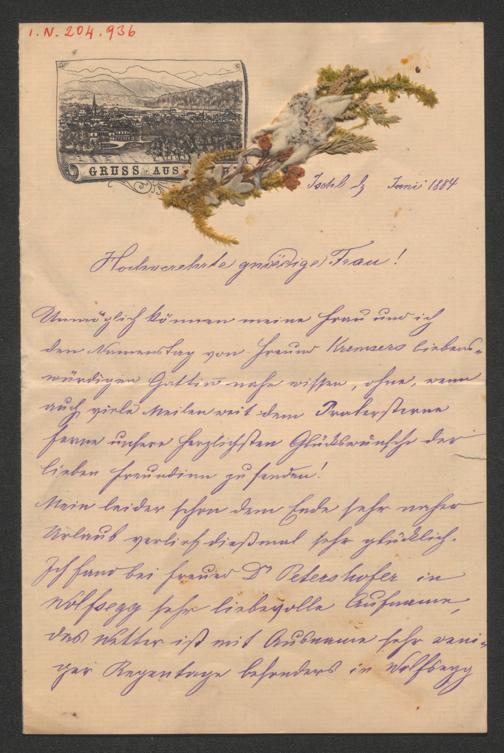 I.N. 204.936
GRUSS AUS
Ischl d. Juni 1884
Hochverehrte gnädige Frau!
Unmöglich können meine Frau und ich
den Namenstag von Freund Kremsers liebens-
würdigen Gattin nahe wissen, ohne, wenn
auch viele Meilen weit dem Praterstern
ferne unsere herzlichsten Glückwünsche der
lieben Freundinn zu senden!
Mein leider schon dem Ende sehr naher
Urlaub verlief dießmal sehr glücklich.
Ich fand bei Freund Dr Petershofer in
Wolfsegg sehr liebevolle Aufname,
das Wetter ist mit Ausname sehr weni-
ger Regentage besonders in Wolfsegg